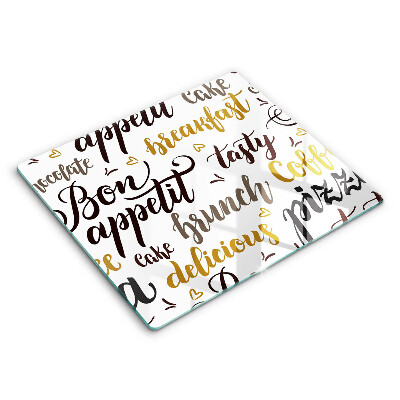 cake
appetit
breakfast
chocolate
tasty
Bon
appetit
Coff
pizz
brunch
cake
delicious